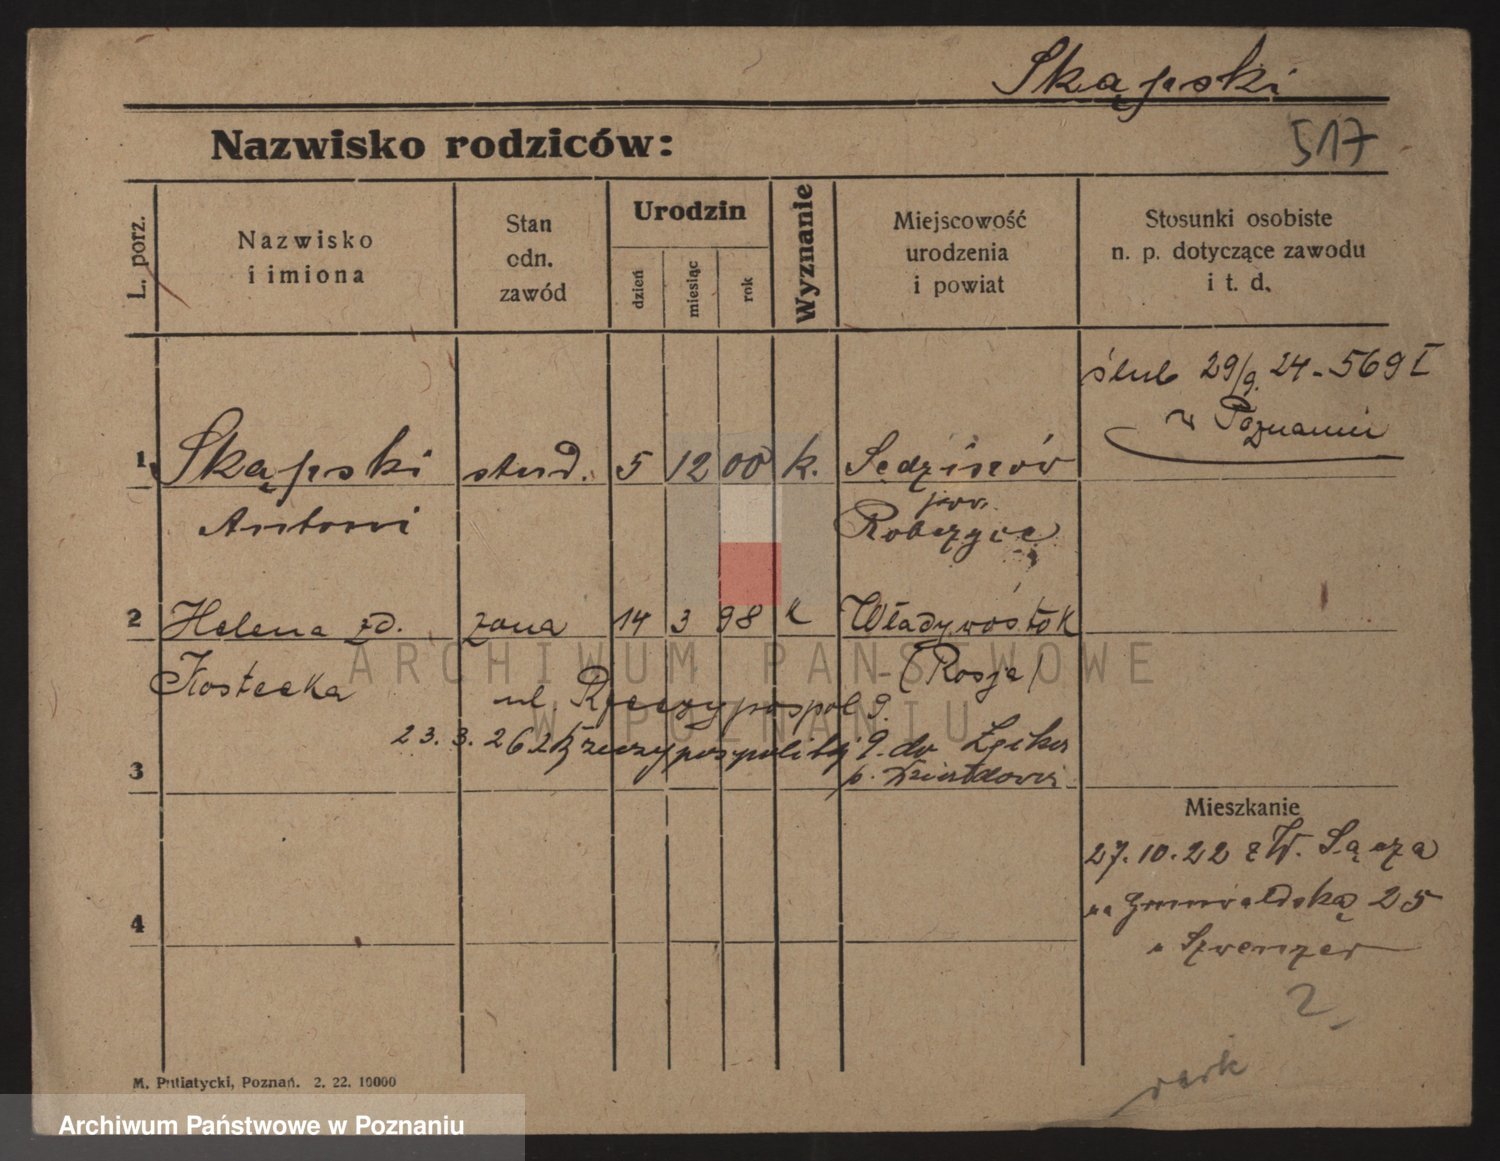 Skąpski
Nazwisko rodziców:
517
L. porz.
Nazwisko
i imiona
Stan
odn.
zawód
Urodzin
dzień
miesiąc
rok
Wyznanie
Miejscowość
urodzenia
i powiat
Stosunki osobiste
n. p. dotyczące zawodu
i t. d.
ślub 29/9. 24 - 569 I
w Poznaniu
1 Skąpski stud. 5 12 00 k. Sędziszów
Antoni
pow.
Robczyce
2 Helena zd. żona 14 3 98 k Władywostok
Kostecka
(Rosja)
ul. Rzeczypospol 9.
23. 3. 26 Rzeczypospolitej 9. do
p.
3
Mieszkanie
27. 10. 22 z W. Sącza
na Grunwaldską 25
4
u
2
M. Putiatycki, Poznań. 2. 22. 10000
ARCHIWUM PAŃSTWOWE
W POZNANIU
Archiwum Państwowe w Poznaniu